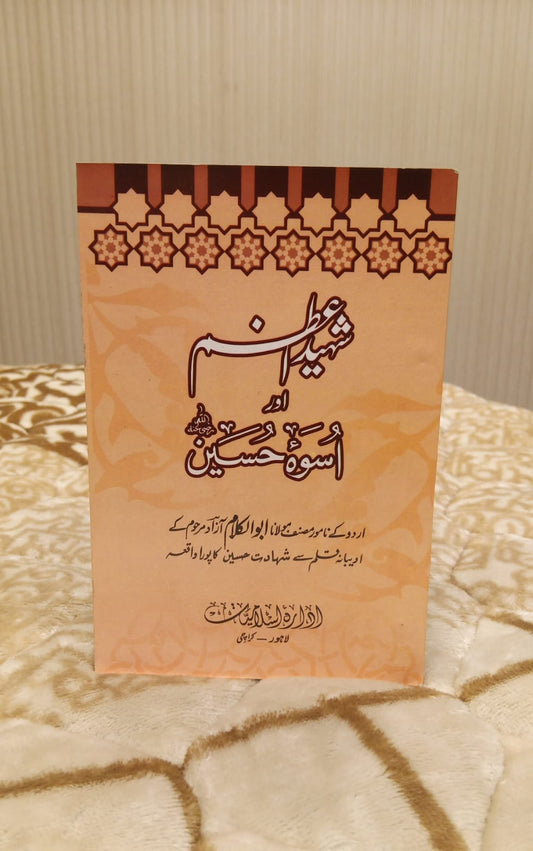 شہید اعظم
اور
اُسوۂ حُسین رضی اللہ عنہ
اردو کے نامور مصنف مولانا ابوالکلام آزاد مرحوم کے
ادیبانہ قلم سے شہادت حسین کا پورا واقعہ
ادارۂ اسلامیات
لاہور – کراچی